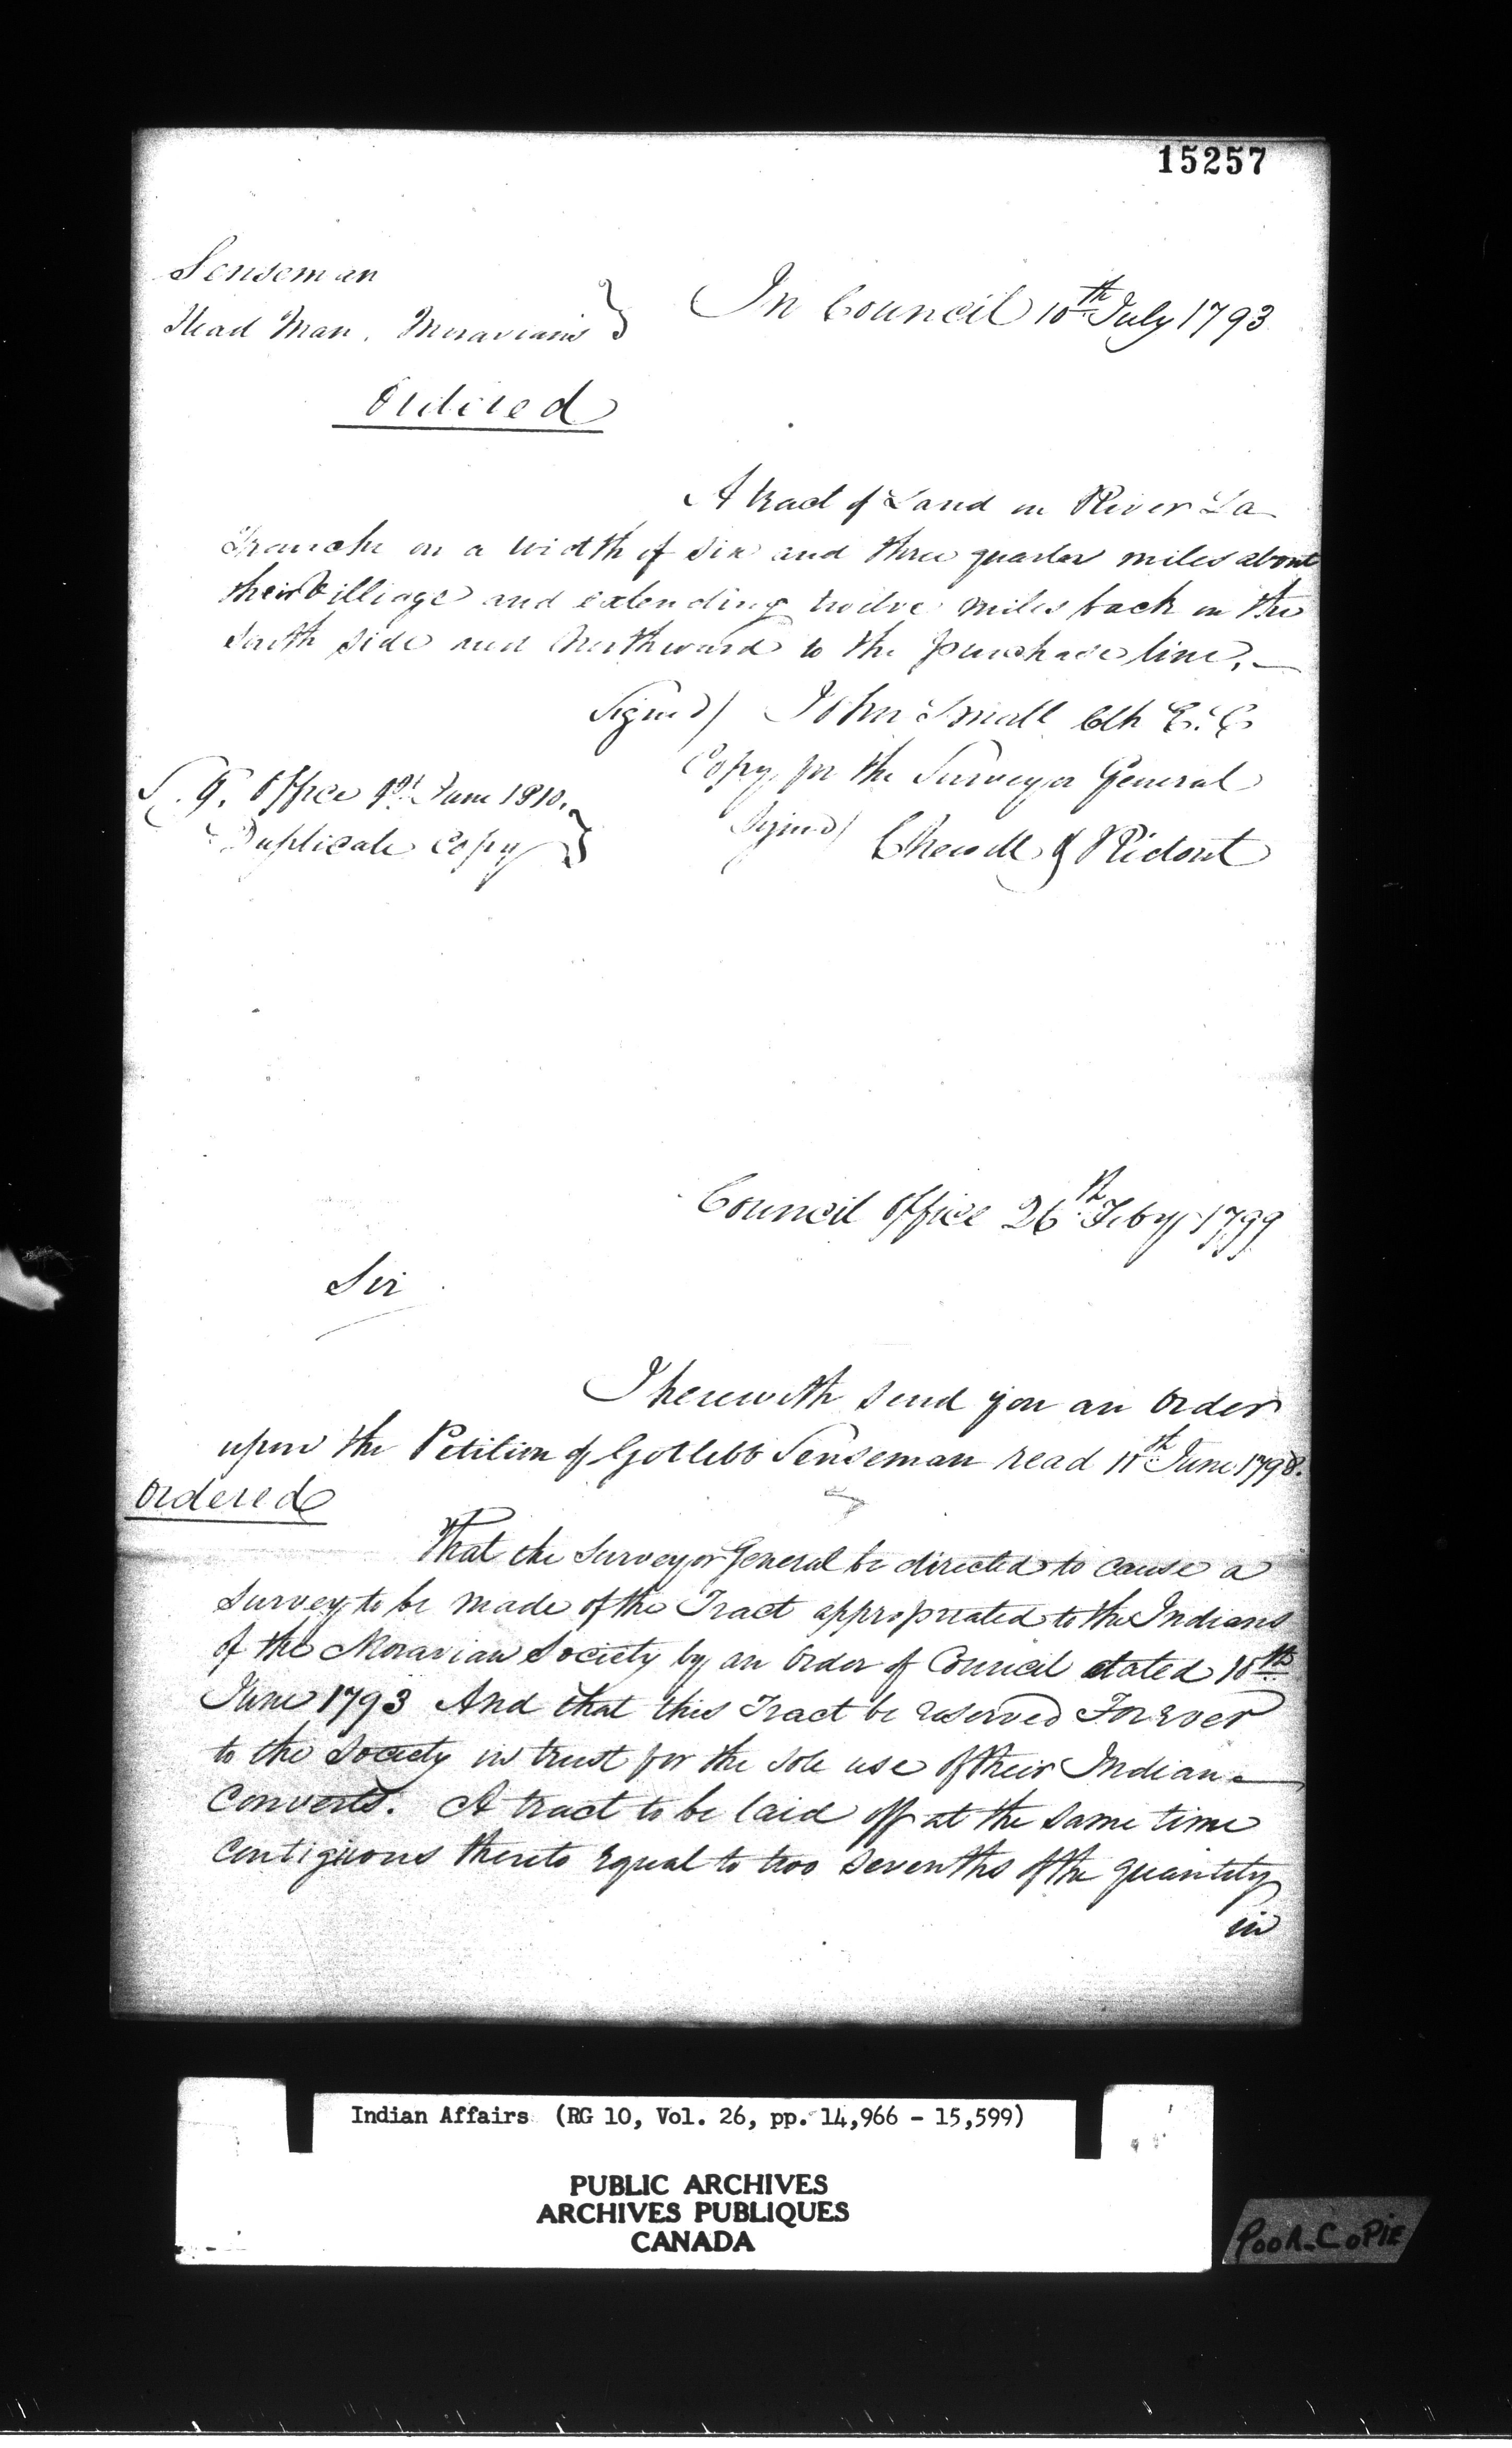 15257
Senseman
Head Man. Moravians } In Council 10th July 1793
Ordered
A tract of Land on River La
Tranche on a width of six and three quarter miles about
their Villiage and extending twelve miles back on the
South side and Northward to the purchase line. —
Signed) John Small Clk E. C
Copy for the Surveyor General
S. G. Office 9th June 1810.
Duplicate Copy }
Signed) Chewett & Ridout
Council Office 26th Feby 1799
Sir
I herewith send you an Order
upon the Petition of Gotlibb Senseman read 11th June 1798.
Ordered
That the Surveyor General be directed to cause a
Survey to be made of the Tract appropriated to the Indians
of the Moravian Society by an Order of Council dated 10th
June 1793 And that this Tract be reserved Forever
to the Society in trust for the sole use of their Indian
Converts. A tract to be laid off at the same time
Contiguous thereto equal to two sevenths of the quantity
in
Indian Affairs (RG 10, Vol. 26, pp. 14,966 - 15,599)
PUBLIC ARCHIVES
ARCHIVES PUBLIQUES
CANADA
POOR COPIE